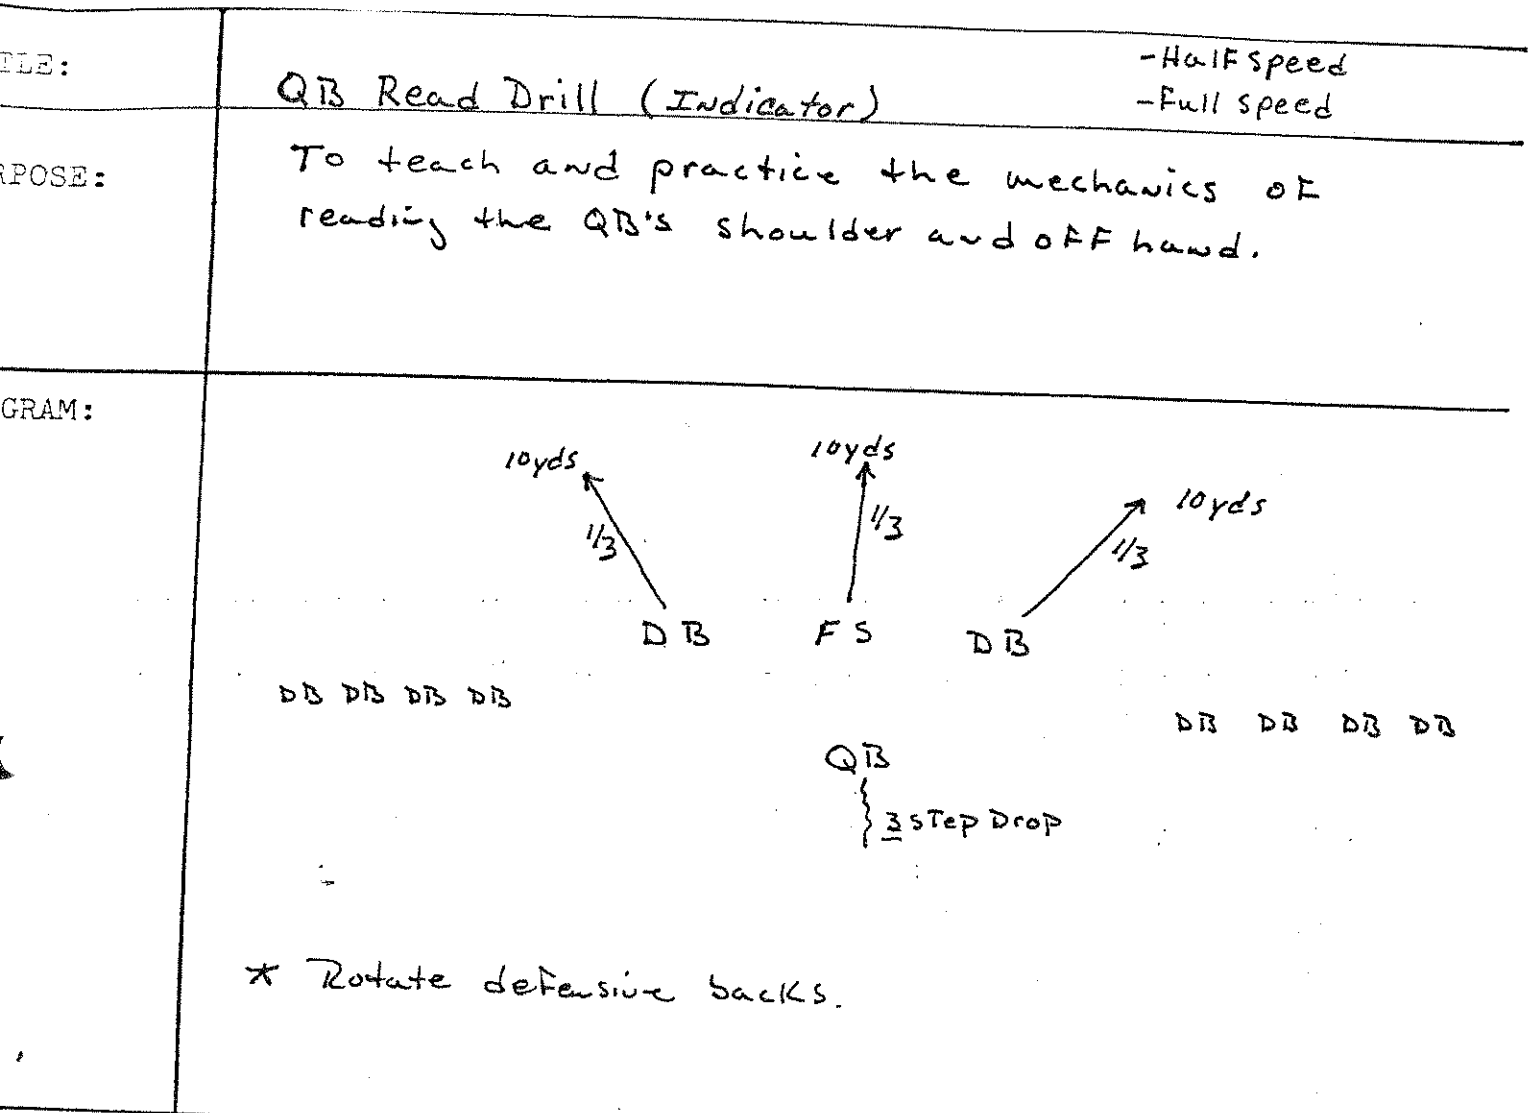 TLE:
QB Read Drill (Indicator)
-Half Speed
-Full Speed
RPOSE:
To teach and practice the mechanics of
reading the QB's shoulder and off hand.
GRAM:
10yds
10yds
10yds
1/3
1/3
1/3
DB FS DB
DB DB DB DB
DB DB DB DB
QB
3 step Drop
* Rotate defensive backs.